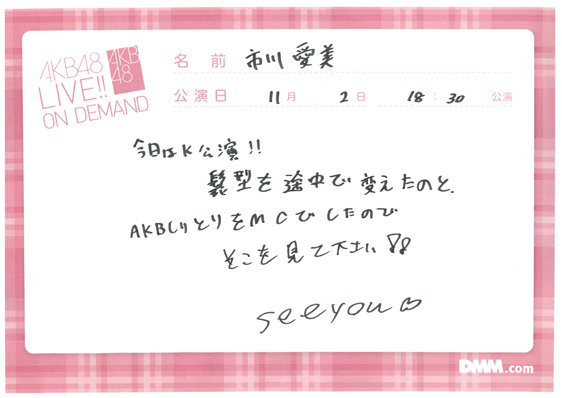 AKB48
LIVE!!
ON DEMAND
AKB
48
名前 市川愛美
公演日 11月 2日 18:30 公演
今日はK公演!!
髪型を途中で変えたのと、
AKBしりとりをMCでしたので
そこを見て下さい!!
see you♡
DMM.com